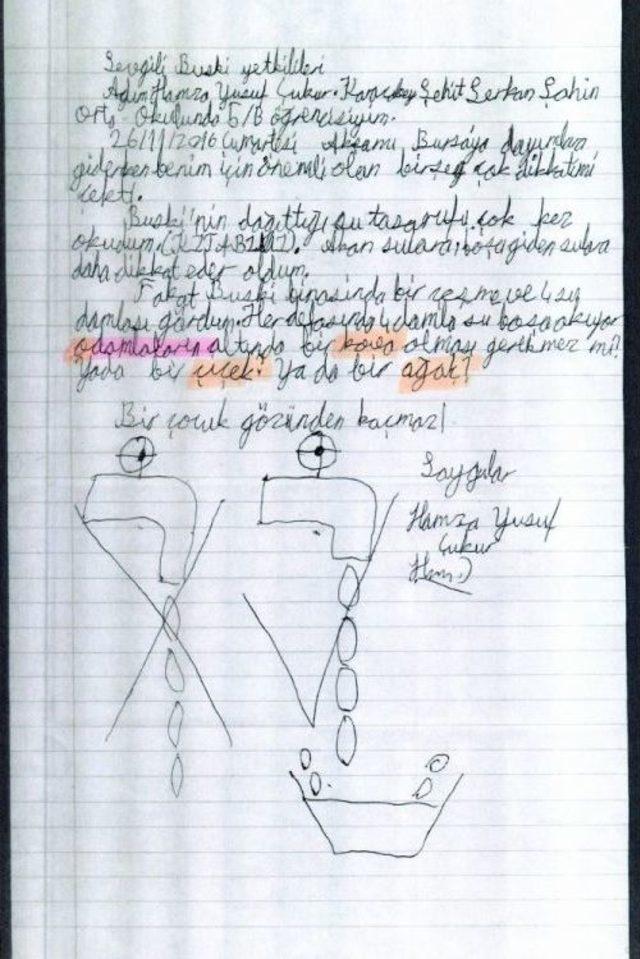 Sevgili Buski yetkilileri
Adım Hamza Yusuf Çukur. Karacabey Şehit Serkan Şahin
Orta Okulunda 5/B öğrencisiyim.
26/11/2016 Cumartesi Akşamı Bursaya dayımdan
giderken benim için önemli olan birşey çok dikkatimi
çekti.
Buski'nin dağıttığı su tasarufu çok kez
okudum. Akan sulara, boşa giden sulara
daha dikkat eder oldum.
Fakat Buski binasında bir çeşme ve 4 su
damlası gördüm. Her defasında 4 damla su boşa akıyor
o damlaların altında bir kova olması gerekmez mi?
Yada bir çiçek? Ya da bir ağaç!
Bir çocuk gözünden kaçmaz!
Saygılar
Hamza Yusuf
Çukur